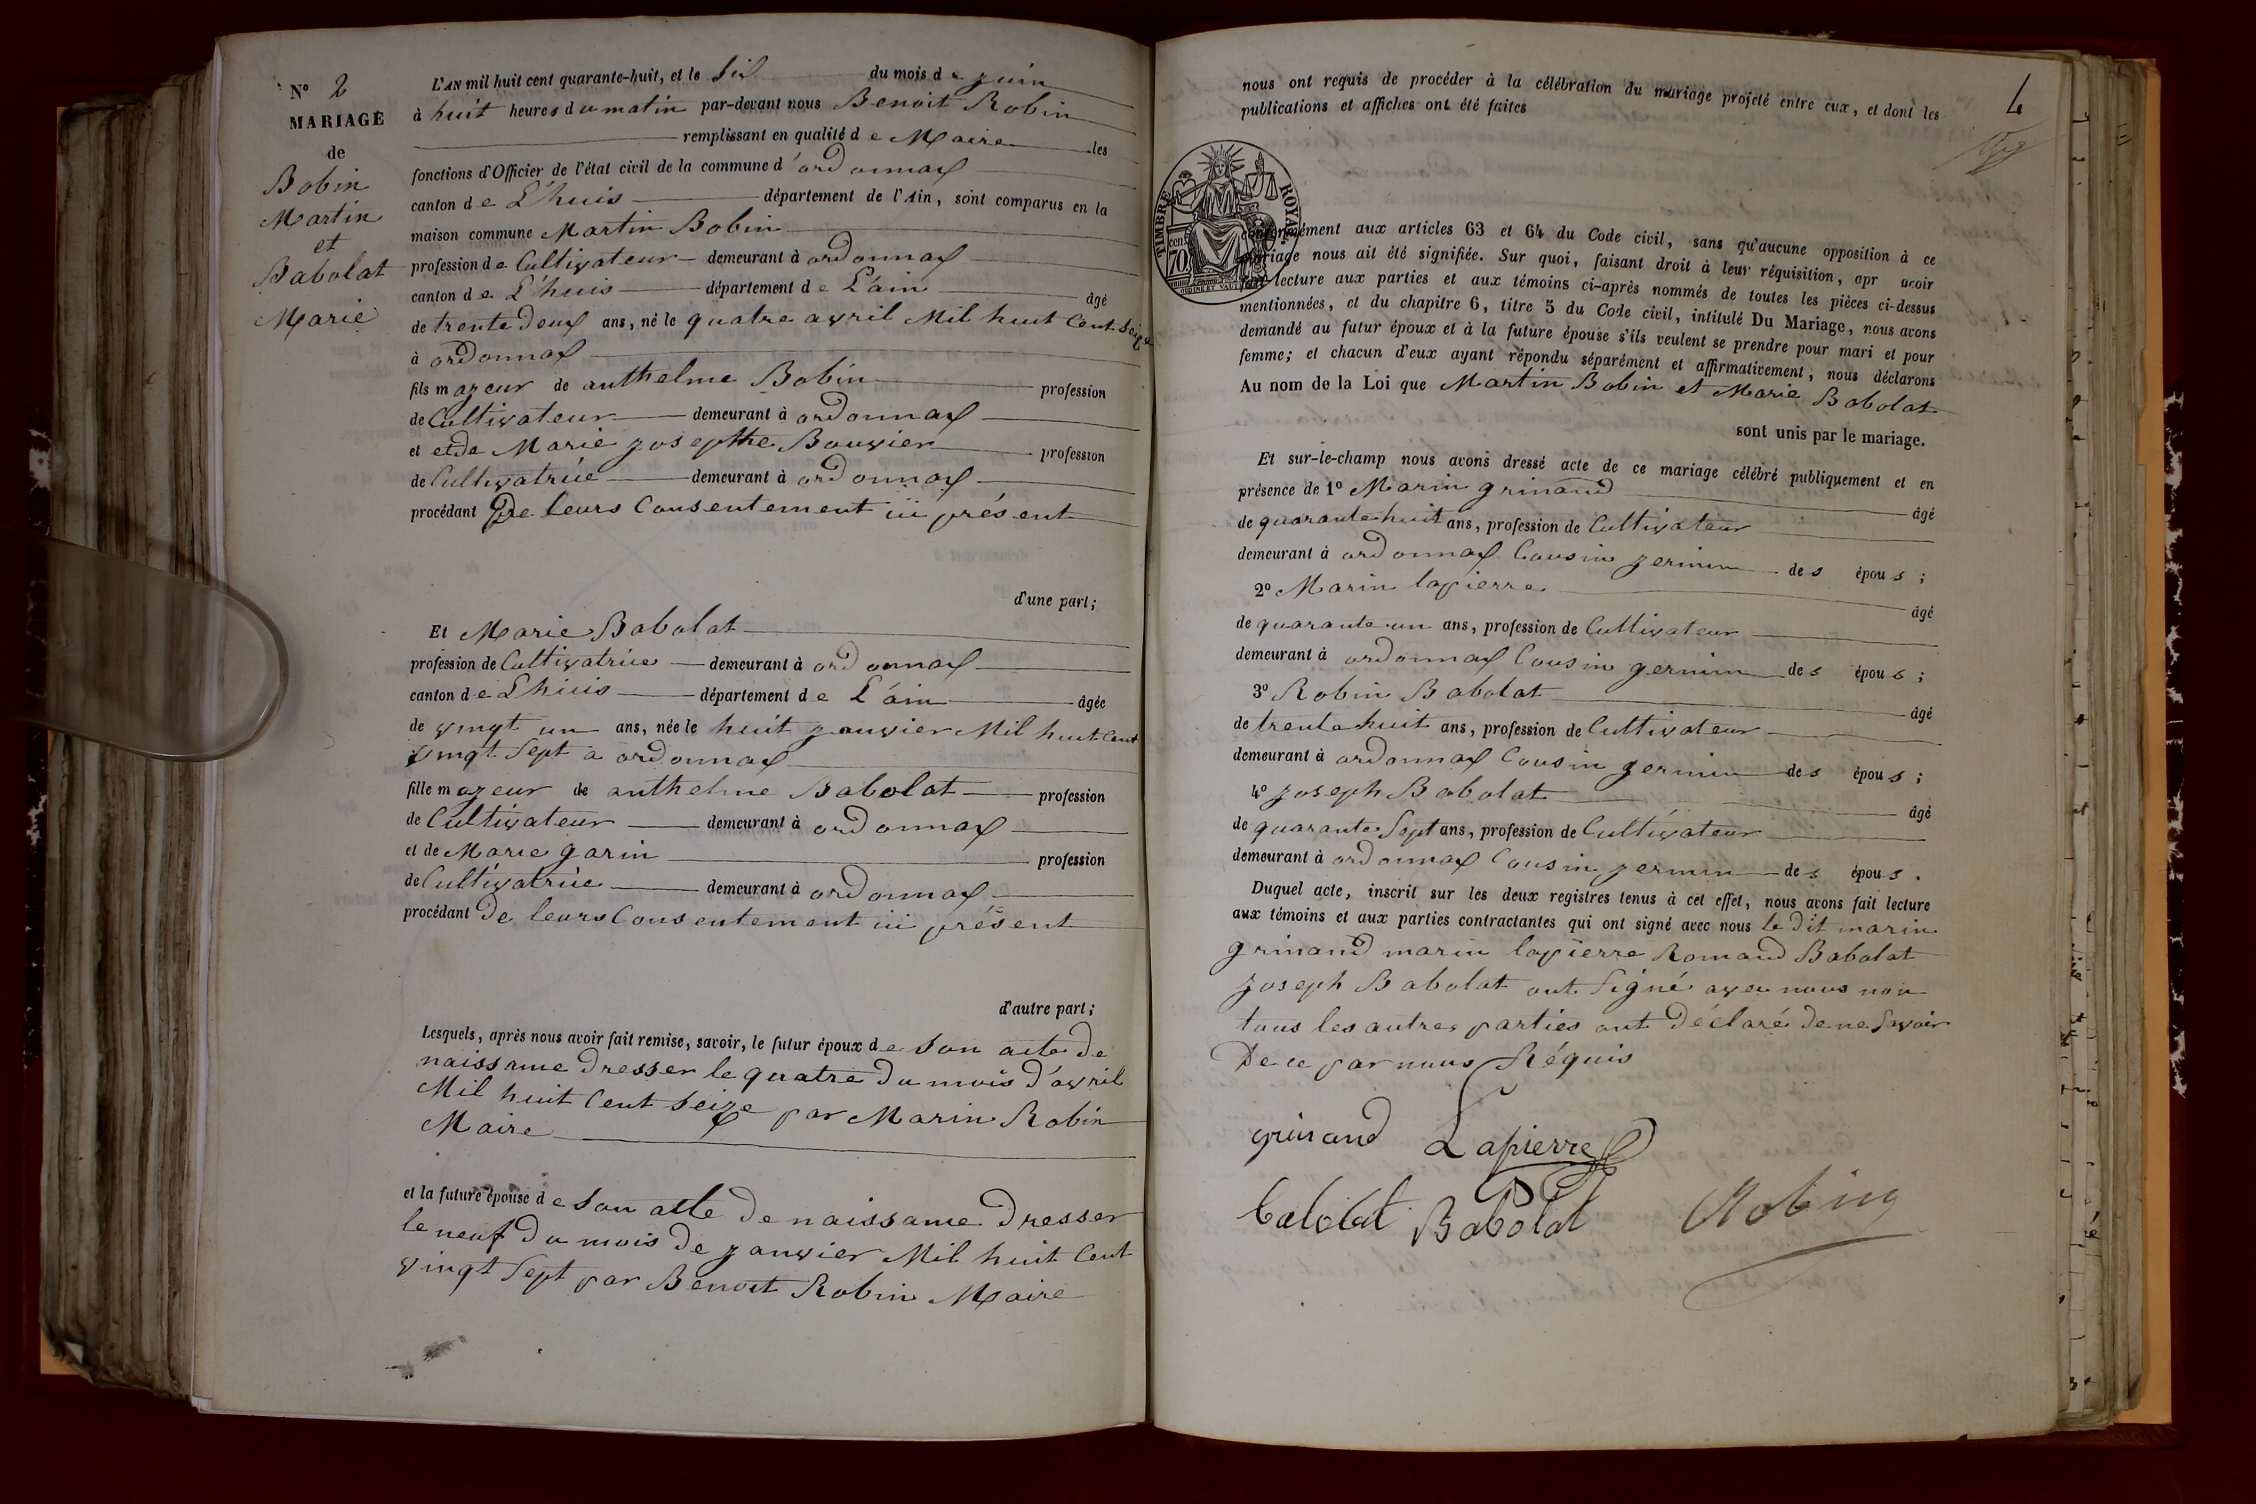 N° 2
MARIAGE
de
Bobin
Martin
et
Babolat
Marie
L'AN mil huit cent quarante-huit, et le Six du mois de juin
à huit heures du matin par-devant nous Benoit Robin
remplissant en qualité de Maire les
fonctions d'Officier de l'état civil de la commune d'ordonnax
canton de L'huis département de l'Ain, sont comparus en la
maison commune Martin Bobin
profession de Cultivateur demeurant à ordonnax
canton de L'huis département de L'ain âgé
de trente deux ans, né le quatre avril Mil huit Cent Seize
à ordonnax
fils majeur de anthelme Bobin profession
de Cultivateur demeurant à ordonnax
et et de Marie josephte Bouvier profession
de Cultivatrice demeurant à ordonnax
procédant De leurs Consentement ici présent
d'une part;
Et Marie Babolat
profession de Cultivatrice demeurant à ordonnax
canton de Lhuis département de L'ain âgée
de vingt un ans, née le huit janvier Mil huit Cent
vingt Sept a ordonnax
fille majeur de anthelme Babolat profession
de Cultivateur demeurant à ordonnax
et de Marie garin profession
de Cultivatrice demeurant à ordonnax
procédant De leurs Consentement ici présent
d'autre part;
Lesquels, après nous avoir fait remise, savoir, le futur époux de Son acte de
naissance Dresser le quatre Du mois d'avril
Mil huit Cent Seize par Marin Robin
Maire
et la future épouse de Son acte De naissance Dresser
le neuf Du mois De janvier Mil huit Cent
vingt Sept par Benoit Robin Maire
4
nous ont requis de procéder à la célébration du mariage projeté entre eux, et dont les
publications et affiches ont été faites
TIMBRE ROYAL
70 cen.
conformément aux articles 63 et 64 du Code civil, sans qu'aucune opposition à ce
mariage nous ait été signifiée. Sur quoi, faisant droit à leur réquisition, apr avoir
fait lecture aux parties et aux témoins ci-après nommés de toutes les pièces ci-dessus
mentionnées, et du chapitre 6, titre 5 du Code civil, intitulé Du Mariage, nous avons
demandé au futur époux et à la future épouse s'ils veulent se prendre pour mari et pour
femme; et chacun d'eux ayant répondu séparément et affirmativement, nous déclarons
Au nom de la Loi que Martin Bobin et Marie Babolat
sont unis par le mariage.
Et sur-le-champ nous avons dressé acte de ce mariage célébré publiquement et en
présence de 1° Marin grinand âgé
de quarante huit ans, profession de Cultivateur
demeurant à ordonnax Cousin jermin des épous;
2° Marin lapierre âgé
de quarante un ans, profession de Cultivateur
demeurant à ordonnax Cousin germin des épous;
3° Robin Babolat âgé
de trente huit ans, profession de Cultivateur
demeurant à ordonnax Cousin germin des épous;
4° joseph Babolat âgé
de quarante Sept ans, profession de Cultivateur
demeurant à ordonnax Cousin jermin des épous.
Duquel acte, inscrit sur les deux registres tenus à cet effet, nous avons fait lecture
aux témoins et aux parties contractantes qui ont signé avec nous le Dit marin
grinand marin lapierre Romand Babolat
joseph Babolat ont Signé avec nous non
tous les autres parties ont Déclaré De ne Savoir
De ce par nous Réquis
grinand Lapierre
babolat Babolat Robin